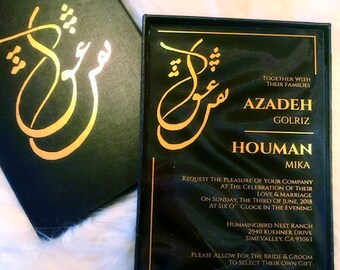 نقش عشق
نقش عشق
TOGETHER WITH
THEIR FAMILIES
AZADEH
GOLRIZ
HOUMAN
MIKA
REQUEST THE PLEASURE OF YOUR COMPANY
AT THE CELEBRATION OF THEIR
LOVE & MARRIAGE
ON SUNDAY, THE THIRD OF JUNE, 2018
AT SIX O'CLOCK IN THE EVENING
HUMMINGBIRD NEST RANCH
2940 KUEHNER DRIVE
SIMI VALLEY, CA 93063
PLEASE ALLOW FOR THE BRIDE & GROOM
TO SELECT THEIR OWN GIFT.